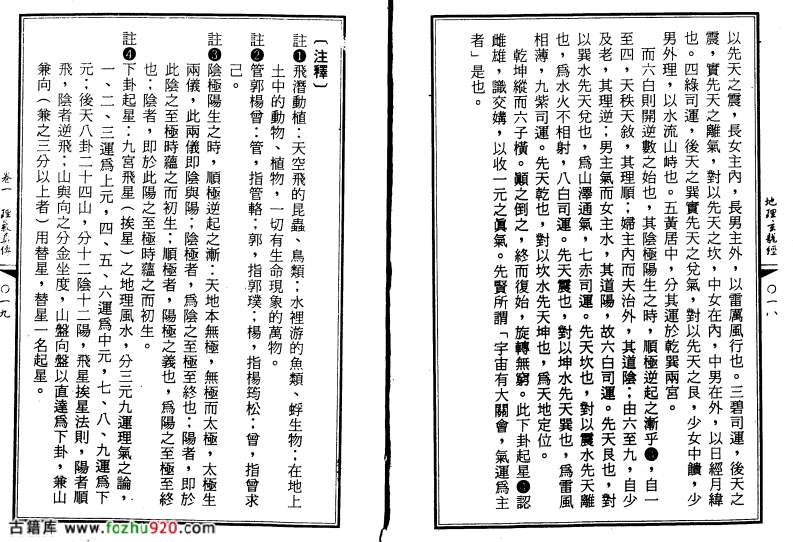 地理玄龍經
〇一八
以先天之震，長女主內，長男主外，以雷厲風行也。三碧司運，後天之
震，實先天之離氣，對以先天之坎，中女在內，中男在外，以日經月緯
也。四綠司運，後天之巽實先天之兌氣，對以先天之艮，少女中饋，少
男外理，以水流山峙也。五黃居中，分其運於乾巽兩宮。
而六白則開逆數之始也，其陰極陽生之時，順極逆起之漸乎❸，自一
至四，天秩天敘，其理順；婦主內而夫治外，其道陰；由六至九，自少
及老，其理逆；男主氣而女主水，其道陽，故六白司運。先天艮也，對
以巽水先天兌也，爲山澤通氣，七赤司運。先天坎也，對以震水先天離
也，爲水火不相射，八白司運。先天震也，對以坤水先天巽也，爲雷風
相薄，九紫司運。先天乾也，對以坎水先天坤也，爲天地定位。
乾坤縱而六子橫。顚之倒之，終而復始，旋轉無窮。此下卦起星❹認
雌雄，識交媾，以收一元之眞氣。先賢所謂「宇宙有大關會，氣運爲主
者」是也。
〔注釋〕
註❶飛潛動植：天空飛的昆蟲、鳥類；水裡游的魚類、蜉生物；在地上
土中的動物、植物，一切有生命現象的萬物。
註❷管郭楊曾：管，指管輅；郭，指郭璞；楊，指楊筠松；曾，指曾求
己。
註❸陰極陽生之時，順極逆起之漸：天地本無極，無極而太極，太極生
兩儀，此兩儀即陰與陽；陰極者，爲陰之至極至終也；陽者，即於
此陰之至極時蘊之而初生；順極者，陽極之義也，爲陽之至極至終
也；陰者，即於此陽之至極時蘊之而初生。
註❹下卦起星：九宮飛星（挨星）之地理風水，分三元九運理氣之論，
一、二、三運爲上元，四、五、六運爲中元，七、八、九運爲下
元；後天八卦二十四山，分十二陰十二陽，飛星挨星法則，陽者順
飛，陰者逆飛；山與向之分金坐度，山盤向盤以直達爲下卦，兼山
兼向（兼之三分以上者）用替星，替星一名起星。
卷一　理氣真傳
〇一九
古籍库 www.fozhu920.com